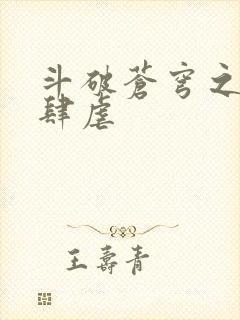 斗破苍穹之
肆虐
王寿青